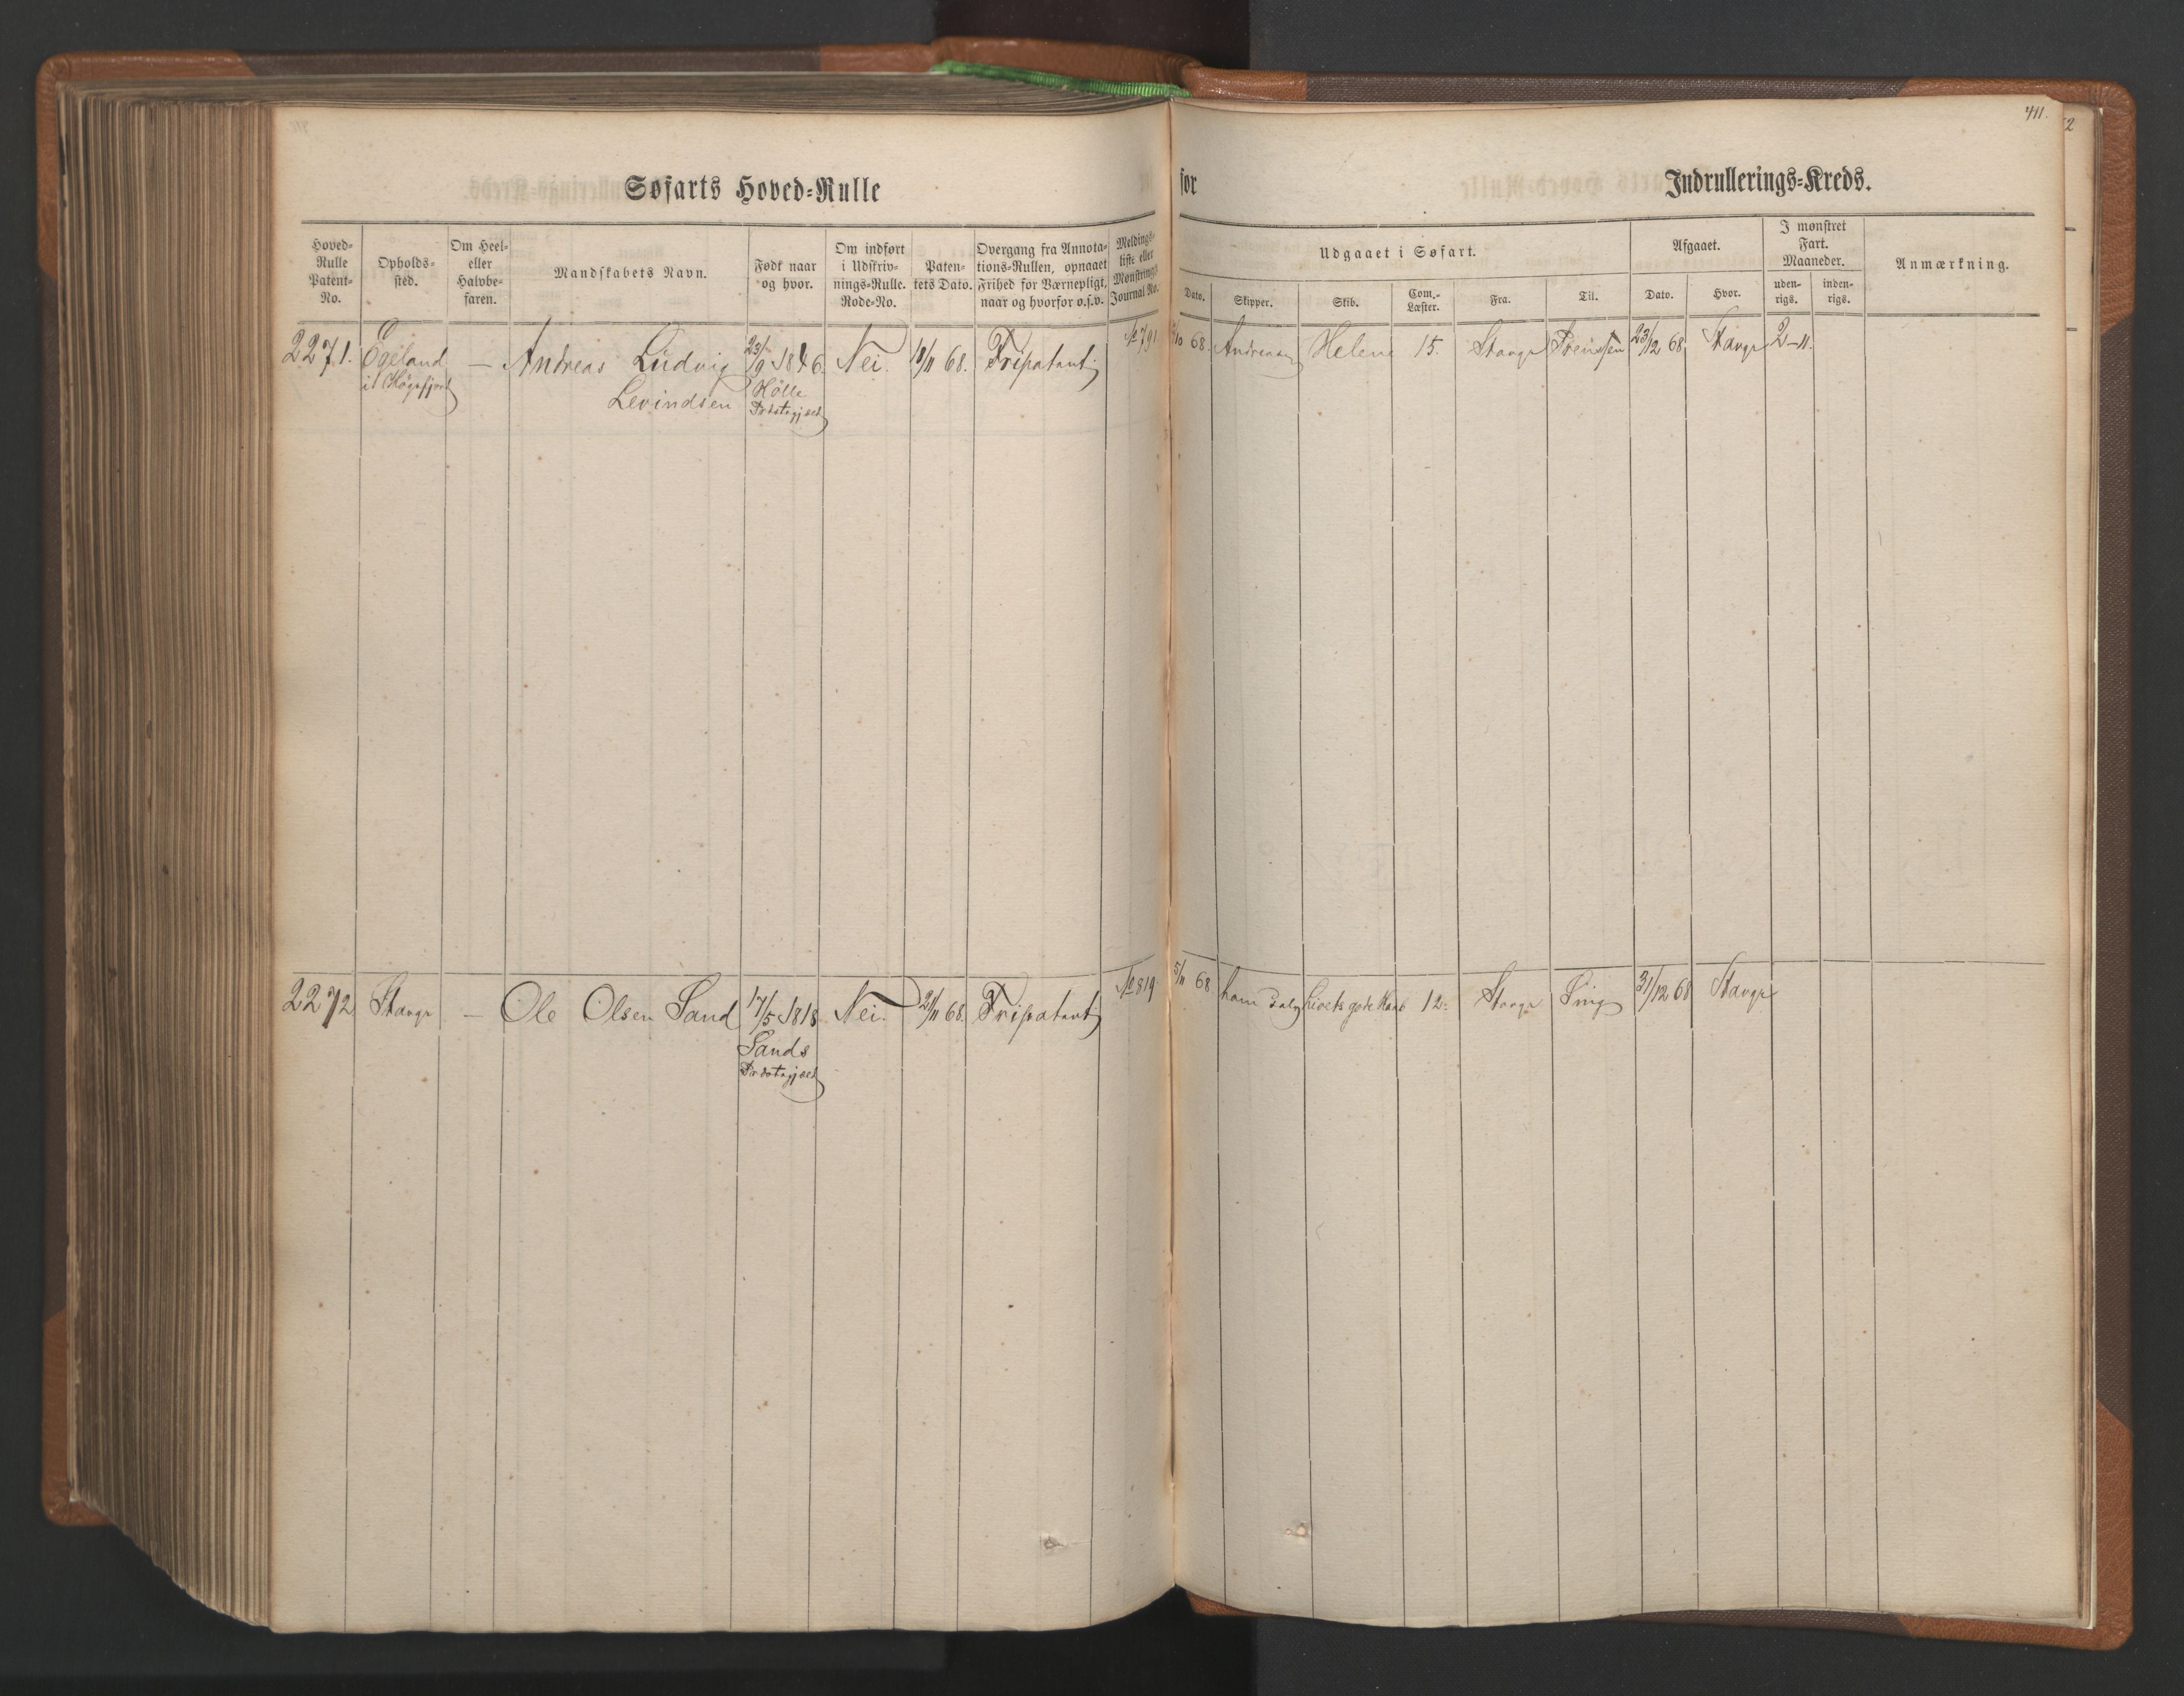 411.
2
Søfarts Hoved=Rulle
for
Indrullerings=Kreds.
Hoved=
Rulle
Patent=
No.
Opholds=
sted.
Om Heel=
eller
Halvbe=
faren.
Mandskabets Navn.
Født naar
og hvor.
Om indført
i Udskriv=
nings=Rulle.
Rode=No.
Paten=
tets Dato.
Overgang fra Annota=
tions=Rullen, opnaaet
Frihed for Værnepligt,
naar og hvorfor o.s.v.
Meldings=
liste eller
Mønstrings
Journal No.
Udgaaet i Søfart.
Dato.
Skipper.
Skib.
Com.=
Læster.
Fra.
Til.
Afgaaet.
Dato.
Hvor.
I mønstret
Fart.
Maaneder.
uden=
rigs.
inden=
rigs.
Anmærkning.
2271. Egeland — Andreas Ludvig 23/9 1846. Nei. 18/11 68. Fripatent № 791. /10 68. Andreasen Helene 15. Stavgr 23/12 68. Stavgr 2-11.
i Høgsfjord Levindsen Hölle
Præstegjæld
2272 Stavgr — Ole Olsen Sand 17/5 1818. Nei. 21/11 68. Fripatent № 819. 5/11 68. Livets gode Haab 12. Stavgr 31/12 68 Stavgr
Sands
Præstegjæld